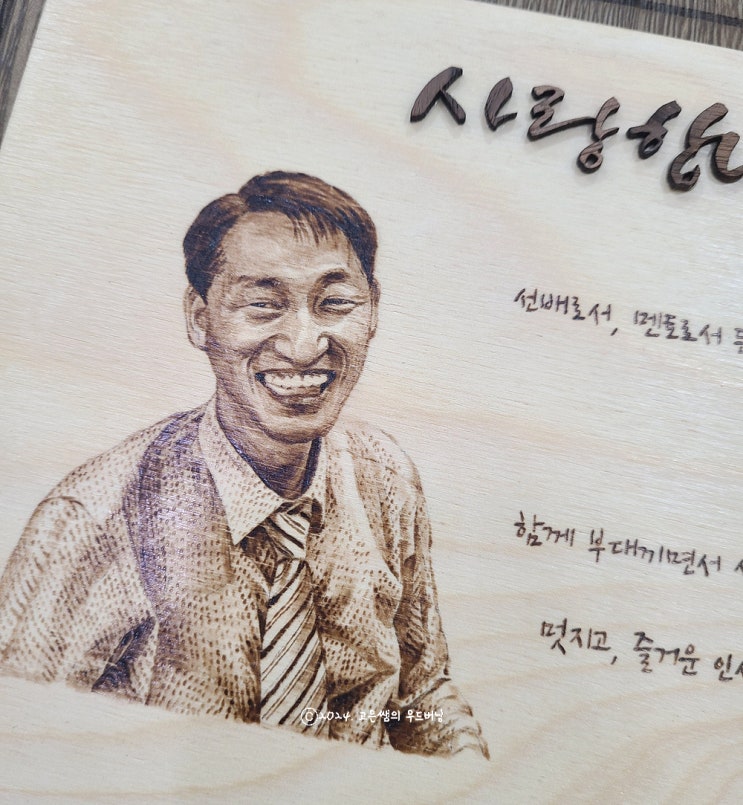 사랑합
선배로서, 멘토로서
함께 부대끼면서
멋지고, 즐거운
©2024. 고은쌤의 우드버닝